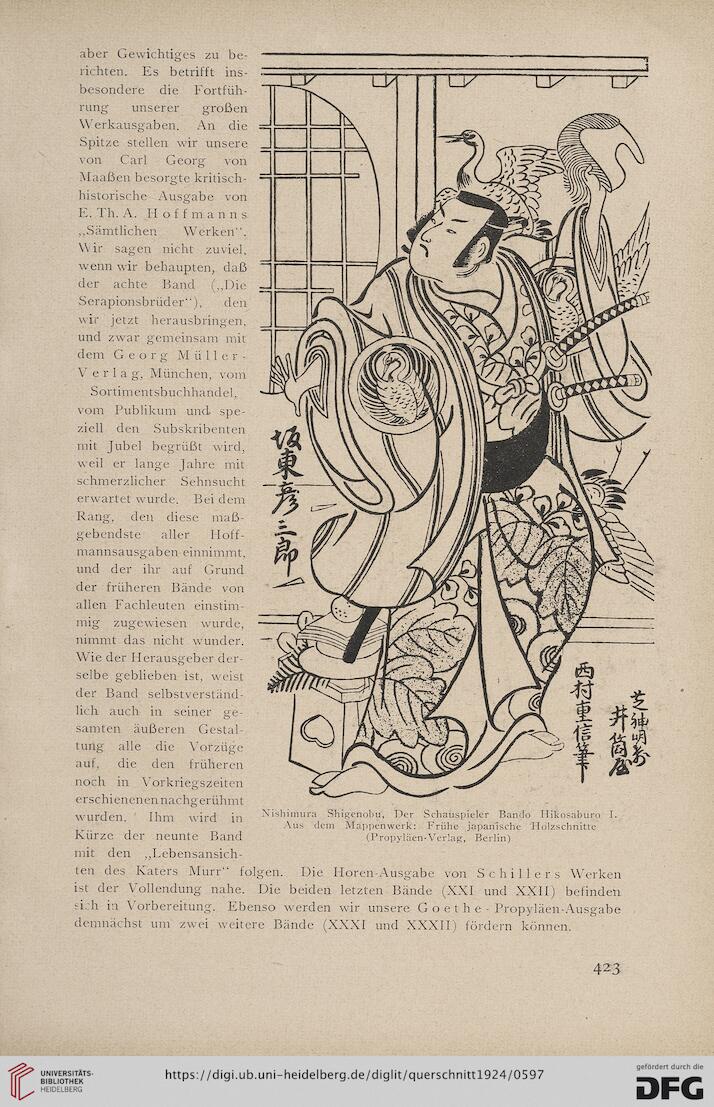 aber Gewichtiges zu be-
richten. Es betrifft ins-
besondere die Fortfüh-
rung unserer großen
Werkausgaben. An die
Spitze stellen wir unsere
von Carl Georg von
Maaßen besorgte kritisch-
historische Ausgabe von
E. Th. A. Hoffmanns
„Sämtlichen Werken“.
Wir sagen nicht zuviel,
wenn wir behaupten, daß
der achte Band („Die
Serapionsbrüder“), den
wir jetzt herausbringen,
und zwar gemeinsam mit
dem Georg Müller-
Verlag, München, vom
Sortimentsbuchhandel,
vom Publikum und spe-
ziell den Subskribenten
mit Jubel begrüßt wird,
weil er lange Jahre mit
schmerzlicher Sehnsucht
erwartet wurde. Bei dem
Rang, den diese maß-
gebendste aller Hoff-
mannsausgaben einnimmt,
und der ihr auf Grund
der früheren Bände von
allen Fachleuten einstim-
mig zugewiesen wurde,
nimmt das nicht wunder.
Wie der Herausgeber der-
selbe geblieben ist, weist
der Band selbstverständ-
lich auch in seiner ge-
samten äußeren Gestal-
tung alle die Vorzüge
auf, die den früheren
noch in Vorkriegszeiten
erschienenen nachgerühmt
wurden. Ihm wird in
Kürze der neunte Band
mit den „Lebensansich-
ten des Katers Murr“ folgen. Die Horen-Ausgabe von Schillers Werken
ist der Vollendung nahe. Die beiden letzten Bände (XXI und XXII) befinden
sich in Vorbereitung. Ebenso werden wir unsere Goethe-Propyläen-Ausgabe
demnächst um zwei weitere Bände (XXXI und XXXII) fördern können.
坂東彦三郎
西村重信筆
芝神明前
井筒屋
Nishimura Shigenobu, Der Schauspieler Bando Hikosaburo I.
Aus dem Mappenwerk: Frühe japanische Holzschnitte
(Propyläen-Verlag, Berlin)
423
UNIVERSITÄTS-
BIBLIOTHEK
HEIDELBERG
https://digi.ub.uni-heidelberg.de/diglit/querschnitt1924/0597
gefördert durch die
DFG